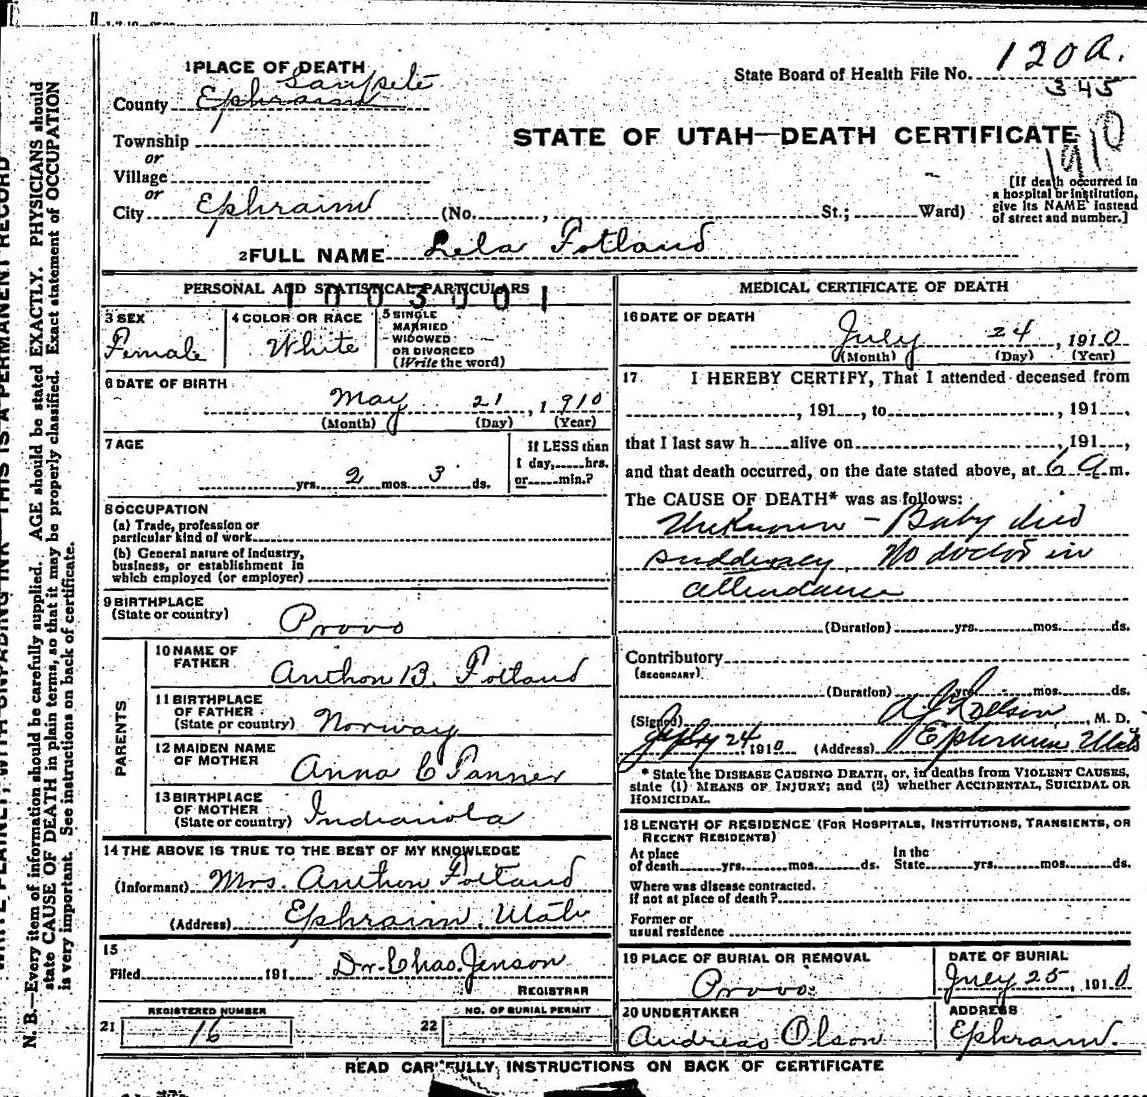 1 PLACE OF DEATH
Sanpete
County Ephraim
State Board of Health File No. 120A.
345
STATE OF UTAH—DEATH CERTIFICATE
1910
Township
or
Village
or
City Ephraim (No. , St.; Ward)
[If death occurred in
a hospital or institution,
give its NAME instead
of street and number.]
2 FULL NAME Lela Fotland
PERSONAL AND STATISTICAL PARTICULARS
1003001
3 SEX
Female
4 COLOR OR RACE
White
5 SINGLE
MARRIED
WIDOWED
OR DIVORCED
(Write the word)
6 DATE OF BIRTH
May 21, 1910
(Month) (Day) (Year)
7 AGE
yrs. 2 mos. 3 ds.
If LESS than
1 day, hrs.
or min.?
8 OCCUPATION
(a) Trade, profession or
particular kind of work
(b) General nature of industry,
business, or establishment in
which employed (or employer)
9 BIRTHPLACE
(State or country)
Provo
PARENTS
10 NAME OF
FATHER
Anthon B. Fotland
11 BIRTHPLACE
OF FATHER
(State or country)
Norway
12 MAIDEN NAME
OF MOTHER
Anna C Tanner
13 BIRTHPLACE
OF MOTHER
(State or country)
Indianola
14 THE ABOVE IS TRUE TO THE BEST OF MY KNOWLEDGE
(Informant) Mrs. Anthon Fotland
(Address) Ephraim, Utah
15
Filed 191 Dr. Chas. Jenson
REGISTRAR
REGISTERED NUMBER
21 16
NO. OF BURIAL PERMIT
22
MEDICAL CERTIFICATE OF DEATH
16 DATE OF DEATH
July 24, 1910
(Month) (Day) (Year)
17. I HEREBY CERTIFY, That I attended deceased from
, 191 , to , 191 ,
that I last saw h alive on , 191 ,
and that death occurred, on the date stated above, at 6 a.m.
The CAUSE OF DEATH* was as follows:
Unknown - Baby died
suddenly, No doctor in
attendance
(Duration) yrs. mos. ds.
Contributory
(SECONDARY)
(Duration) yrs. mos. ds.
(Signed) , M. D.
July 24 1910 (Address) Ephraim Utah
* State the DISEASE CAUSING DEATH, or, in deaths from VIOLENT CAUSES,
state (1) MEANS OF INJURY; and (2) whether ACCIDENTAL, SUICIDAL OR
HOMICIDAL.
18 LENGTH OF RESIDENCE (FOR HOSPITALS, INSTITUTIONS, TRANSIENTS, OR
RECENT RESIDENTS)
At place
of death yrs. mos. ds.
In the
State yrs. mos. ds.
Where was disease contracted.
if not at place of death?
Former or
usual residence
19 PLACE OF BURIAL OR REMOVAL
Provo
DATE OF BURIAL
July 25, 1910
20 UNDERTAKER
Andreas Olson
ADDRESS
Ephraim.
READ CAREFULLY INSTRUCTIONS ON BACK OF CERTIFICATE
N. B.—Every item of information should be carefully supplied. AGE should be stated EXACTLY. PHYSICIANS should
state CAUSE OF DEATH in plain terms, so that it may be properly classified. Exact statement of OCCUPATION
is very important. See instructions on back of certificate.
WRITE PLAINLY, WITH UNFADING INK—THIS IS A PERMANENT RECORD